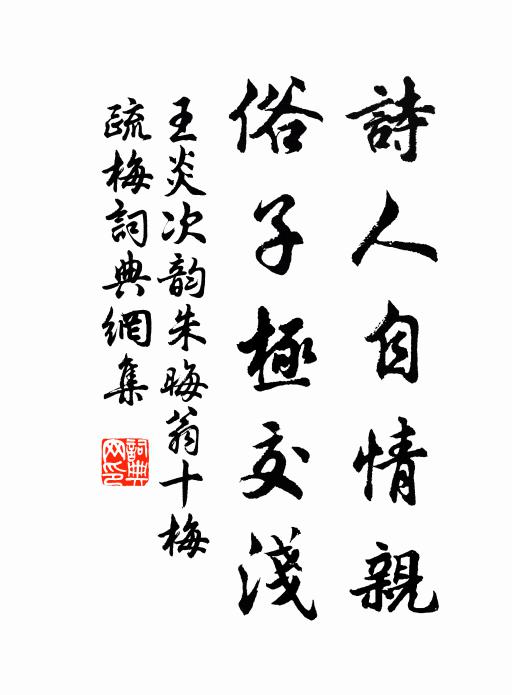 詩人自情親
俗子極交淺
王炎次韵朱晦翁十梅
疏梅詞典網集
詞典網印